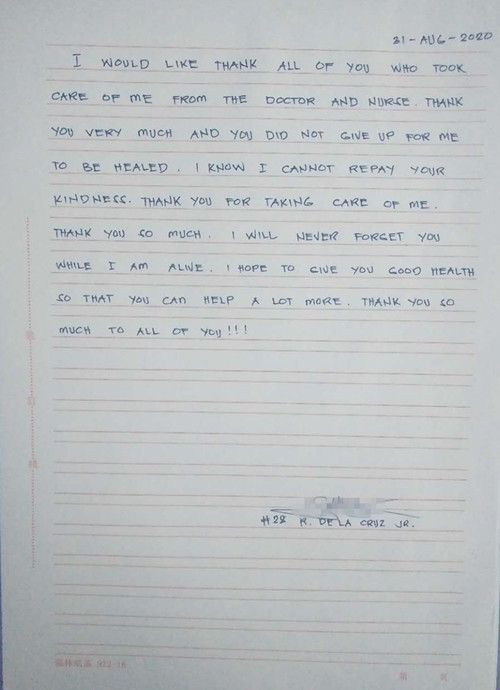 31-AUG-2020
I WOULD LIKE THANK ALL OF YOU WHO TOOK
CARE OF ME FROM THE DOCTOR AND NURSE. THANK
YOU VERY MUCH AND YOU DID NOT GIVE UP FOR ME
TO BE HEALED. I KNOW I CANNOT REPAY YOUR
KINDNESS. THANK YOU FOR TAKING CARE OF ME.
THANK YOU SO MUCH. I WILL NEVER FORGET YOU
WHILE I AM ALIVE. I HOPE TO GIVE YOU GOOD HEALTH
SO THAT YOU CAN HELP A LOT MORE. THANK YOU SO
MUCH TO ALL OF YOU!!!
#28 R. DE LA CRUZ JR.
第 页